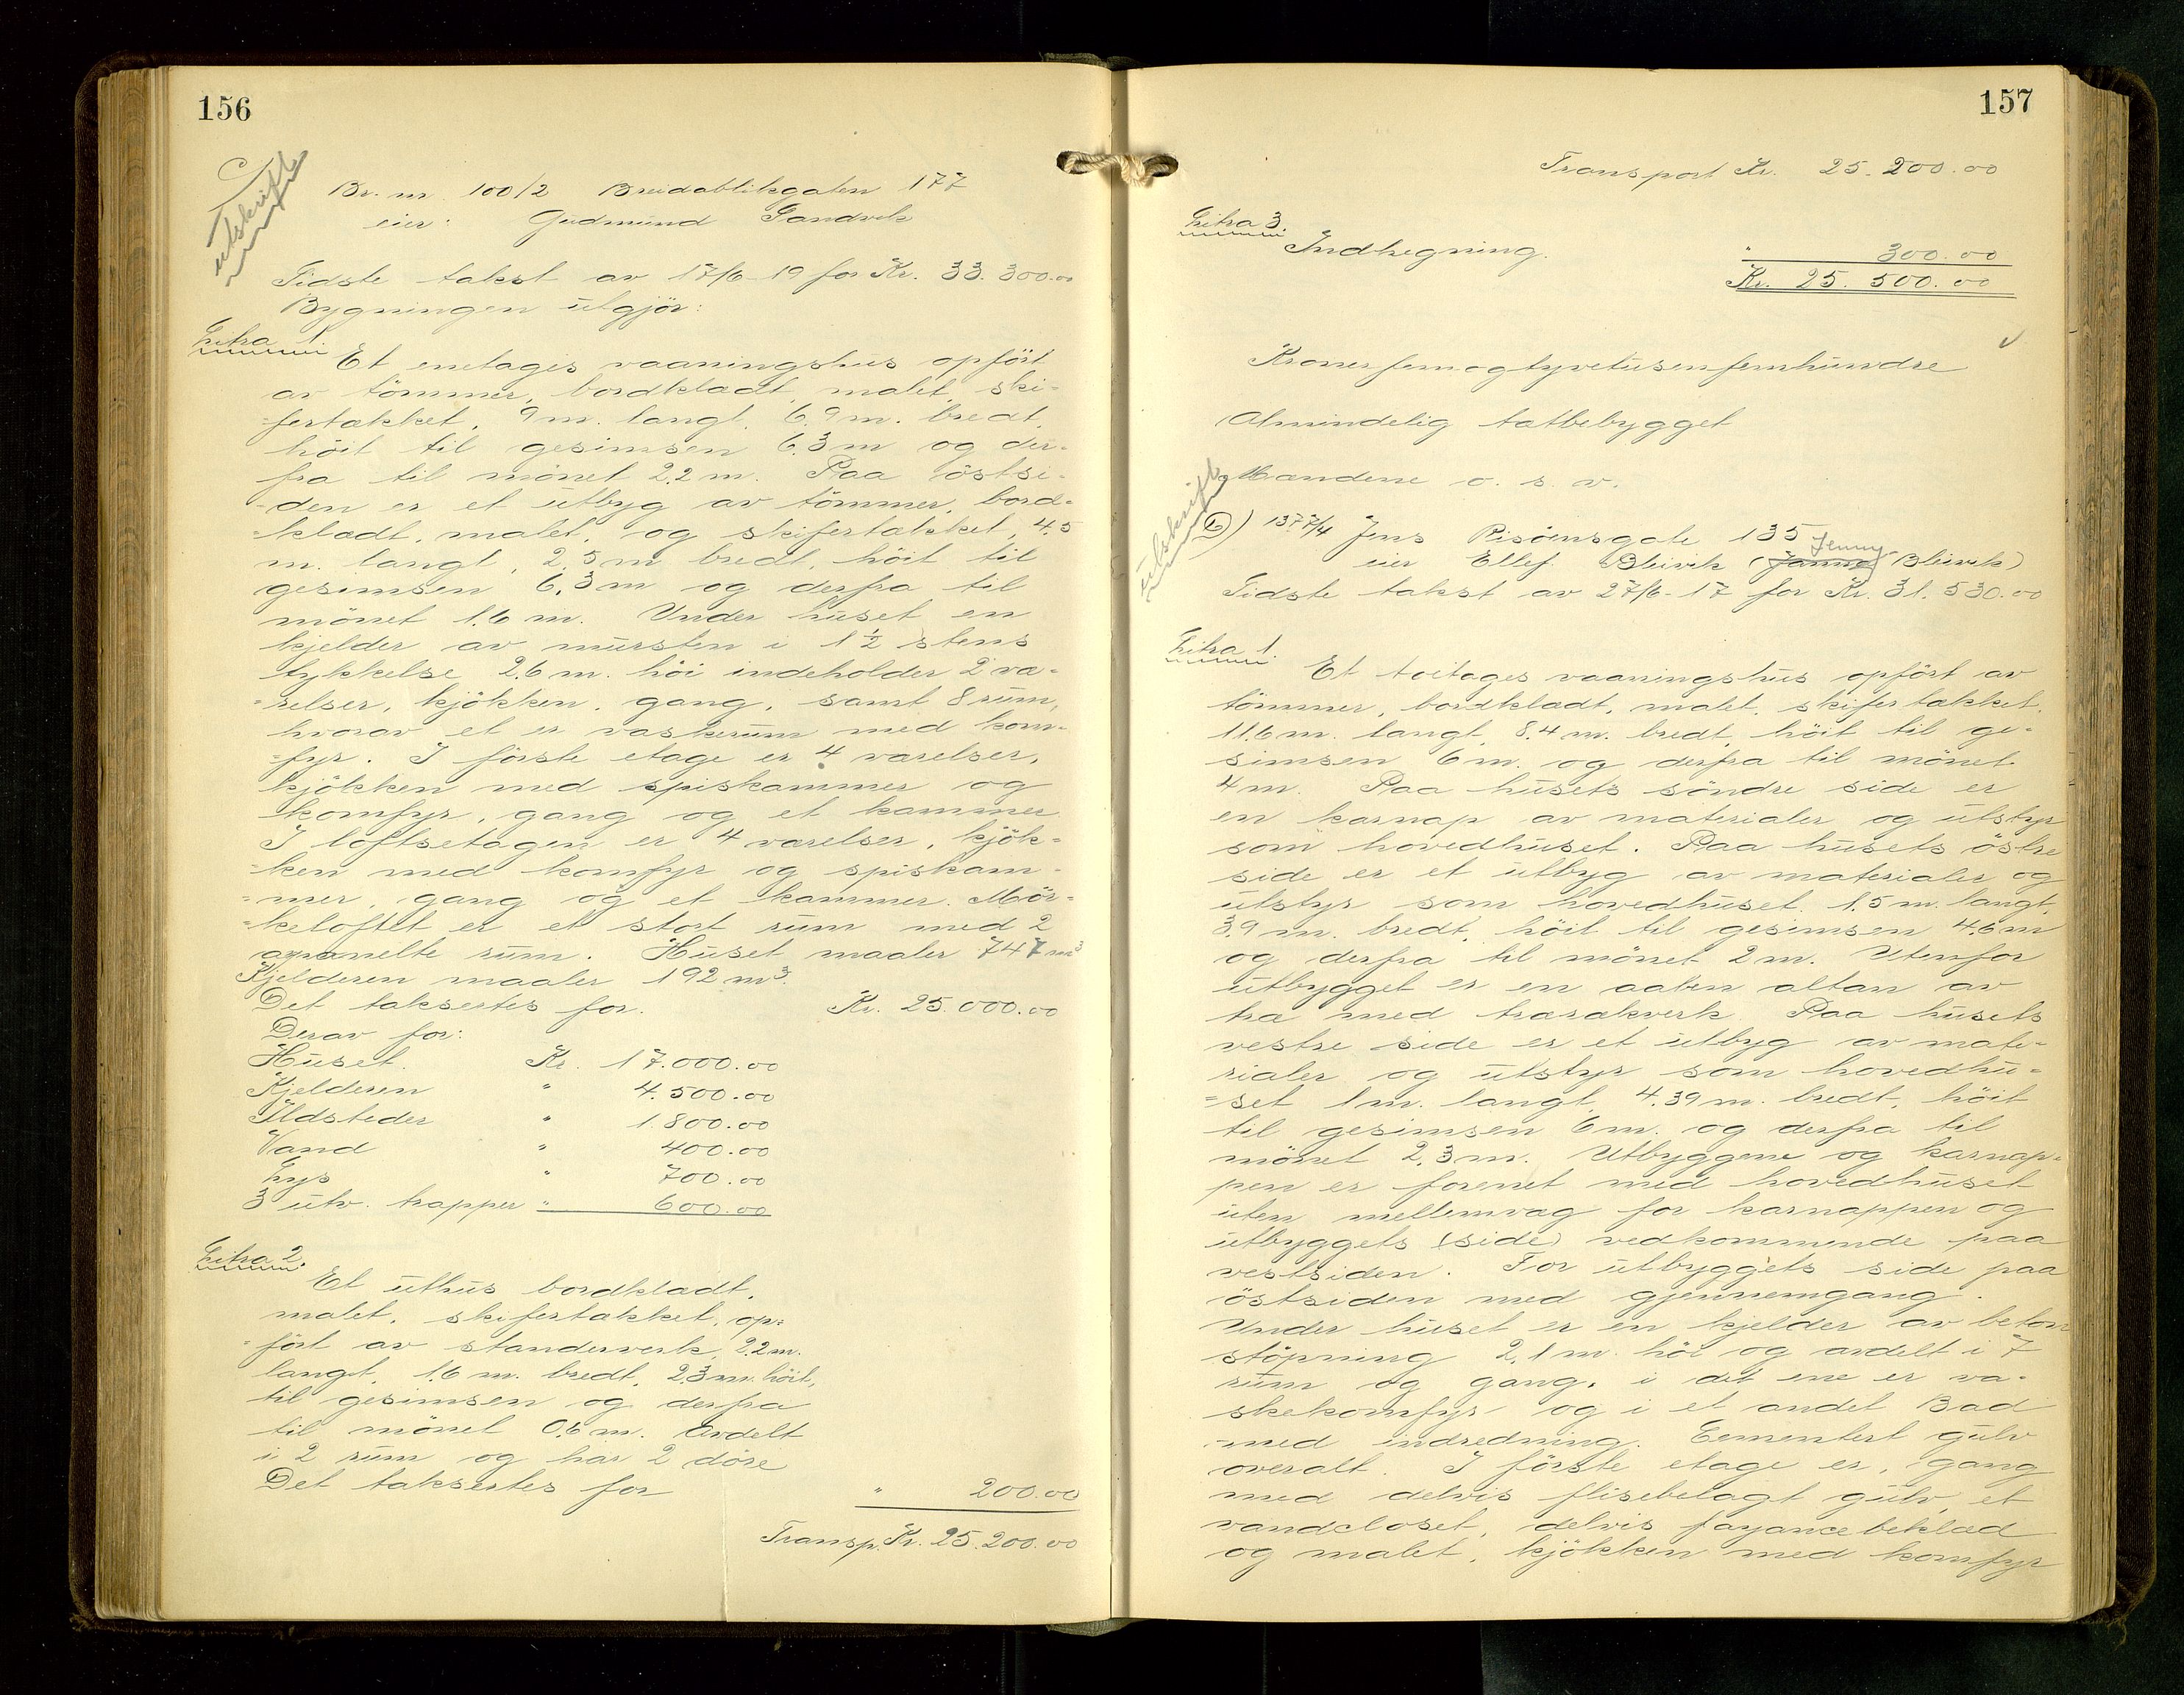 156
C
utskrift
Br. nr. 100/2 Breidabliksgaten 177
eier: Gudmund Sandvik
Sidste takst av 17/6-19 for Kr. 33.300.00
Bygningen utgjör:
Litra 1.
Et enetages vaaningshus opfört
av tömmer, bordklædt, malet, ski-
=fertækket, 9 m. langt, 6.9 m. bredt,
höit til gesimsen 6.3 m og der-
fra til mönet 2.2 m. Paa östsi-
=den er et utbyg av tömmer, bord=
=klædt, malet, og skifertækket, 4.5
m. langt, 2.5 m bredt, höit til
gesimsen 6.3 m og derfra til
mönet 1.6 m. Under huset en
kjelder av mursten i 1 1/2 stens
tykkelse 2.6 m. höi indeholder 2 væ-
=relser, kjökken, gang, samt 8 rum,
hvorav et er vaskerum med kom-
=fyr. I förste etage er 4 værelser,
kjökken med spiskammer og
komfyr, gang og et kammer
I loftsetagen er 4 værelser, kjök=
=ken med komfyr og spiskam-
=mer, gang og et kammer. Mör-
=keloftet er et stort rum med 2
avpanelte rum. Huset maaler 747 m³
Kjelderen maaler 192 m³.
Det taksertes for. Kr. 25.000.00
Derav for:
Huset. Kr. 17.000.00
Kjelderen " 4.500.00
Ildsteder " 1.800.00
Vand " 400.00
Lys " 700.00
3 utv. trapper " 600.00
Litra 2.
Et uthus bordklædt,
malet, skifertækket, op=
=fört av standerverk, 2.2 m.
langt, 1.6 m. bredt, 2.3 m. höit,
til gesimsen og derfra
til mönet 0.6 m. Avdelt
i 2 rum og har 2 döre
Det taksertes for " 200.00
Transp. Kr. 25.200.00
157
Transport Kr. 25.200.00
Litra 3.
Indhegning. " 300.00
Kr. 25.500.00
Kroner femogtyvetusenfemhundre
Almindelig tætbebygget
Mændene o. s. v.
utskrift
D) 1377/4 Jens Risöensgate 135
Jenny
eier Ellef Bleivik (Janna Bleivik)
Sidste takst av 27/6-17 for Kr. 31.530.00
Litra 1.
Et toetages vaaningshus opfört av
tömmer, bordklædt, malet, skifertækket,
11.6 m. langt, 8.4 m. bredt, höit til ge-
simsen 6 m. og derfra til mönet
4 m. Paa husets söndre side er
en karnap av materialer og utstyr
som hovedhuset. Paa husets östre
side er et utbyg av materialer og
utstyr som hovedhuset. 1.5 m. langt,
3.9 m. bredt, höit til gesimsen 4.6 m
og derfra til mönet 2 m. Utenfor
utbygget er en aaben altan av
træ med trærækverk. Paa husets
vestre side er et utbyg av mate-
rialer og utstyr som hovedhu=
=set 1 m. langt, 4.39 m. bredt, höit
til gesimsen 6 m. og derfra til
mönet 2.3 m. Utbyggene og karnap=
pen er forenet med hovedhuset
uten mellemvæg for karnappen og
utbyggets (side) vedkommende paa
vestsiden. For utbyggets side paa
östsiden med gjennemgang.
Under huset er en kjelder av beton
stöpning 2,1 m. höi og avdelt i 7
rum og gang, i det ene er va-
skekomfyr og i et andet Bad
-med indredning. Cementert gulv
overalt. I förste etage er, gang
med delvis flisebelagt gulv, et
vandcloset, delvis fayancebeklæd
og malet, kjökken med komfyr